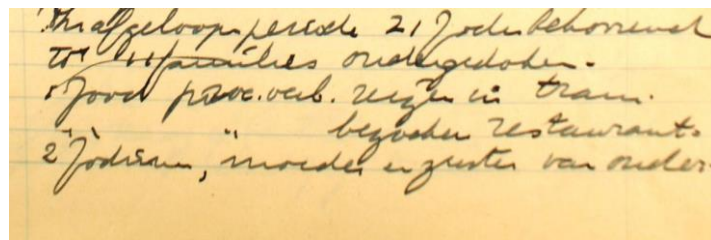 In afgeloopen periode 21 Joden behoorend
tot 11 families ondergedoken.
1 Jood proc. verb. reizen in tram.
1 " " bezoeken restaurant.
2 Jodinnen, moeder en zuster van onder-